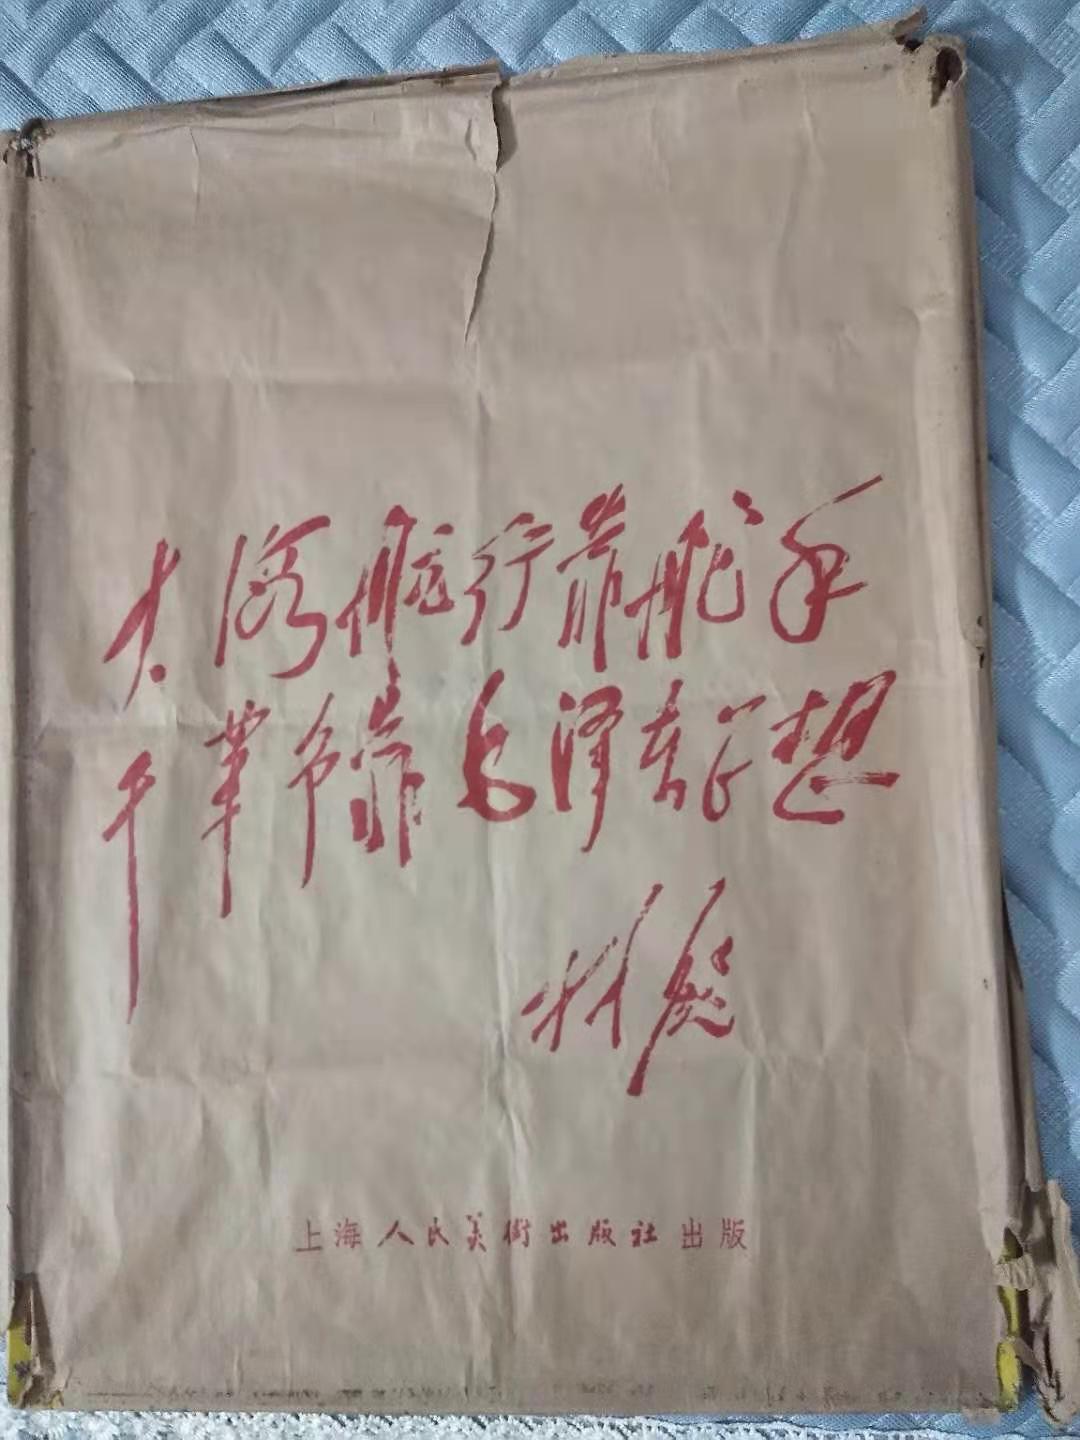 大海航行靠舵手
干革命靠毛泽东思想
林彪
上海人民美術出版社出版